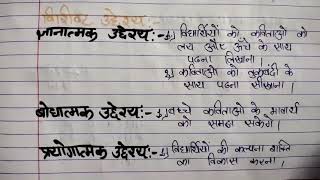 विशिष्ट उद्देश्य:-
ज्ञानात्मक उद्देश्य:- 1) विद्यार्थियों को कविताओं को
लय और के साथ
पढ़ना सिखाना।
2) कविताओं को तुकबंदी के
साथ पढ़ना सीखाना।
बोधात्मक उद्देश्य:- 1) बच्चे कविताओं के भावार्थ
को समझ सकेंगे।
प्रयोगात्मक उद्देश्य:- 1) विद्यार्थियों की कल्पना शक्ति
का विकास करना।